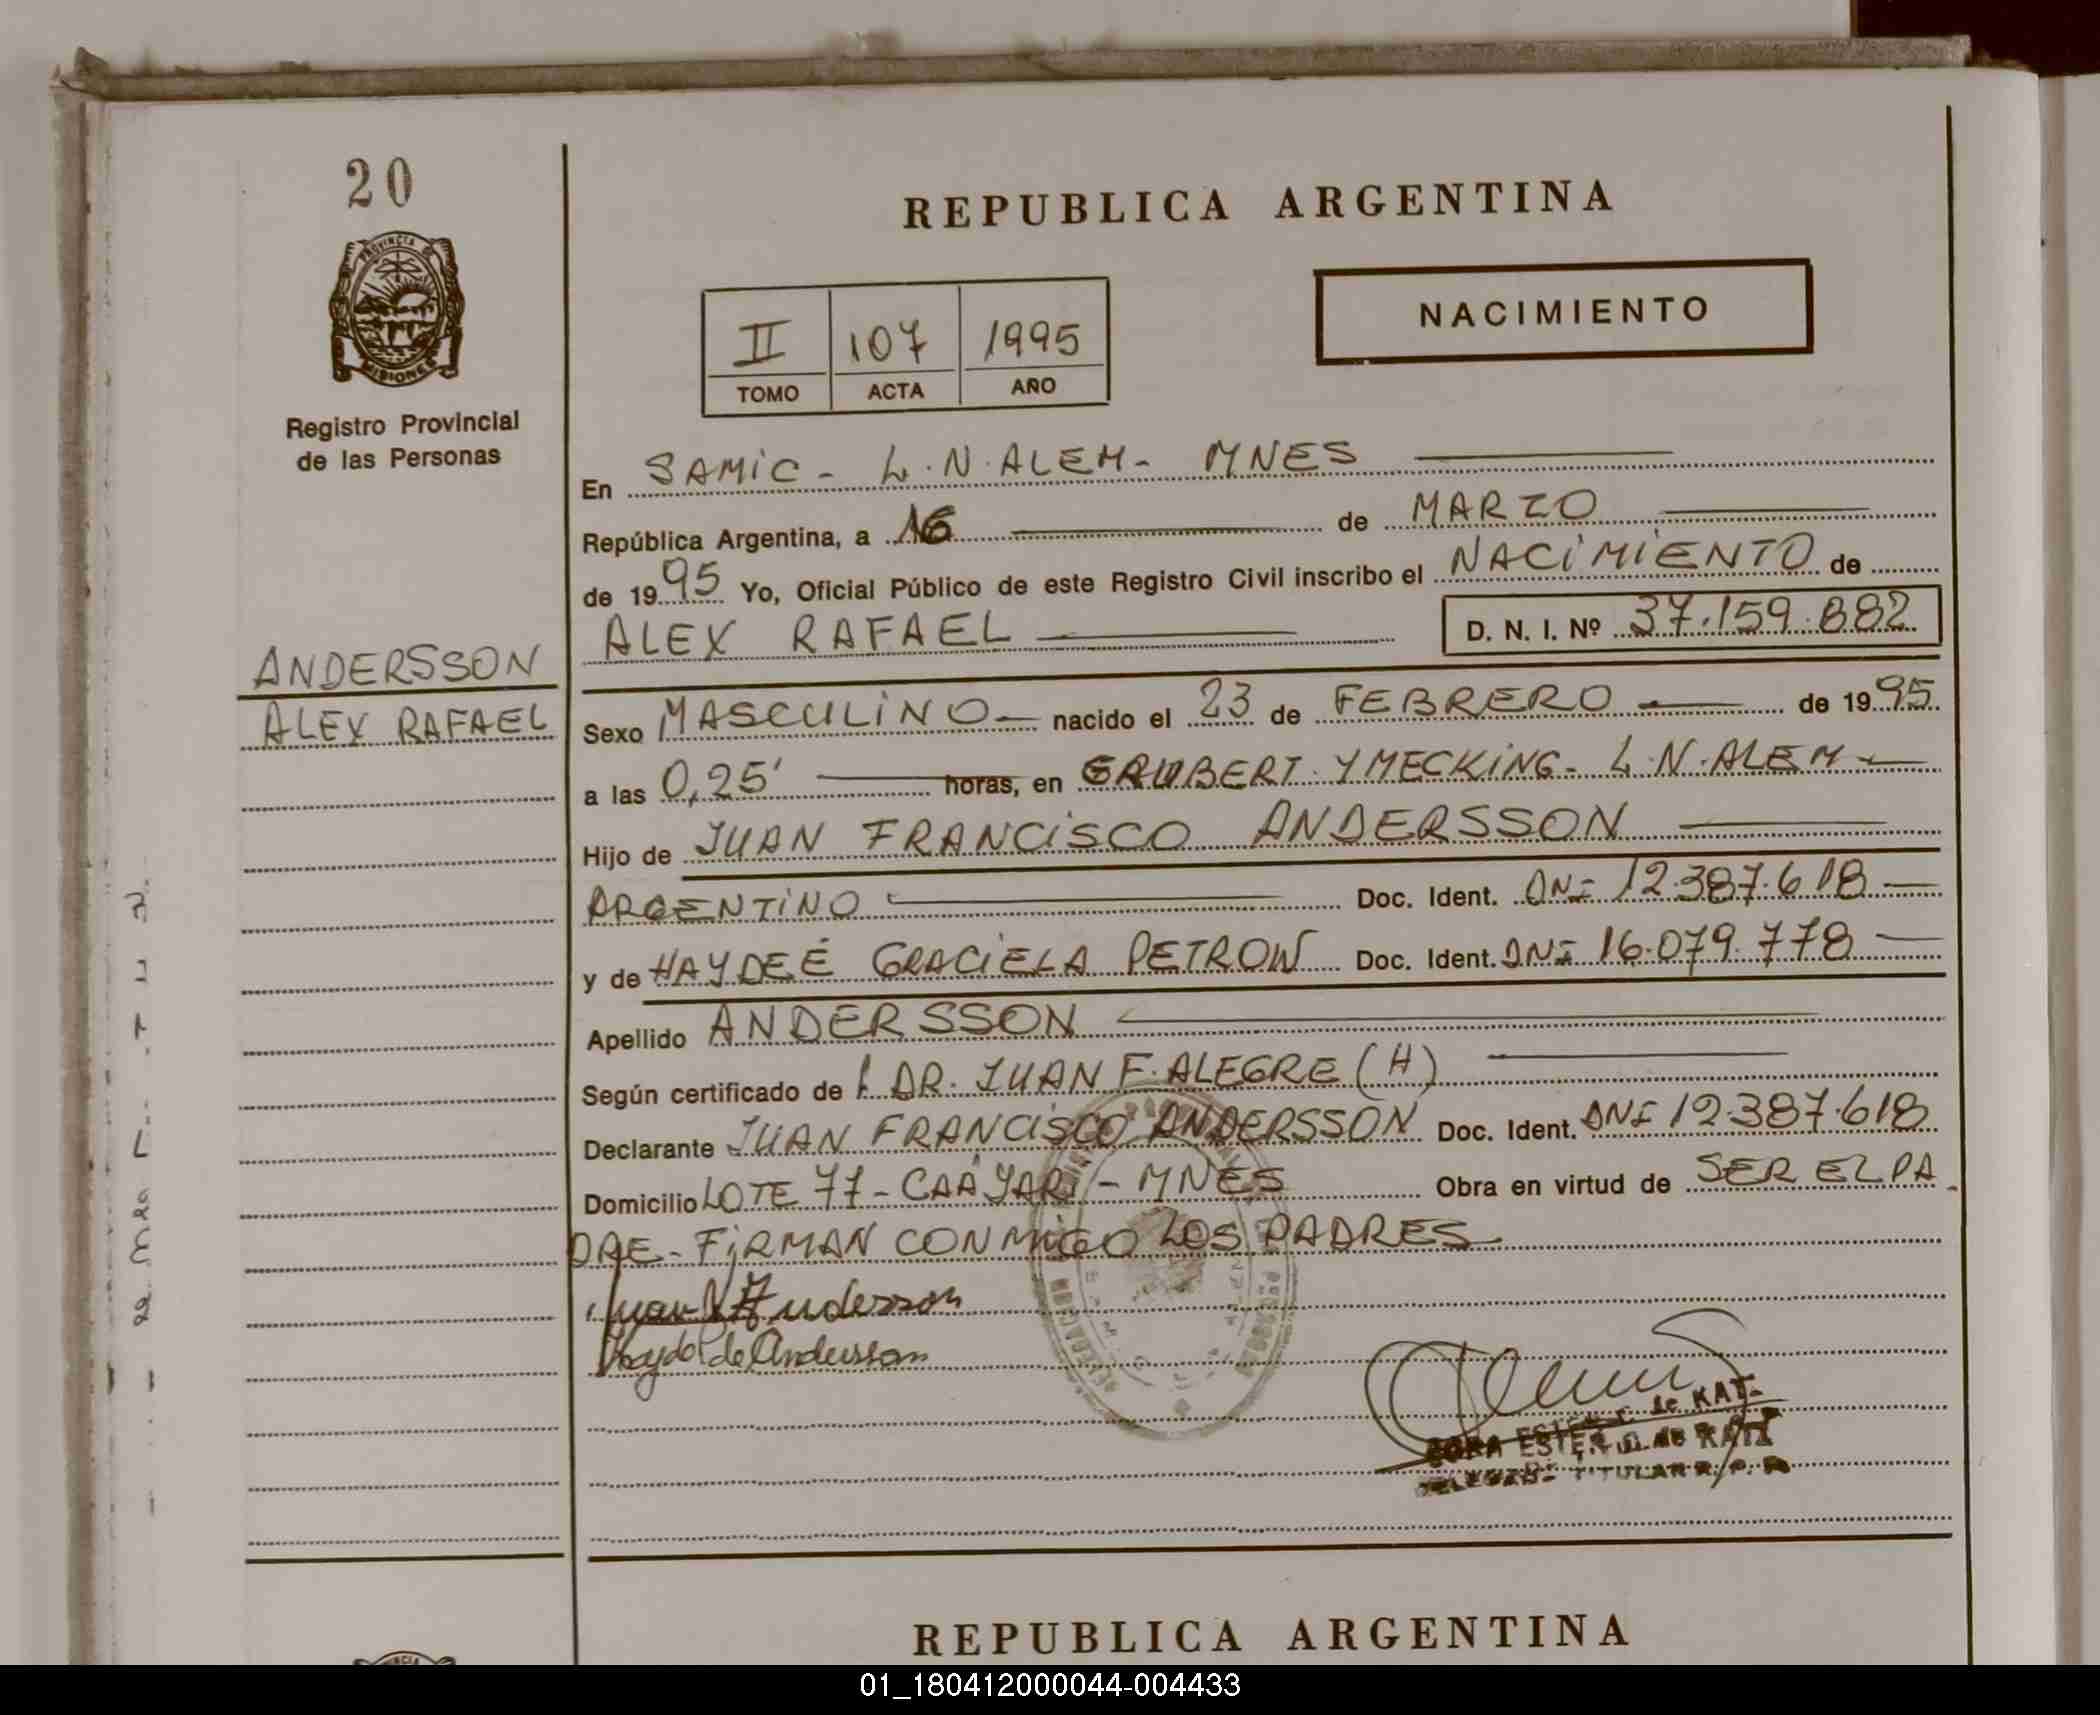 20
PROVINCIA DE
MISIONES
Registro Provincial
de las Personas
ANDERSSON
ALEX RAFAEL
REPUBLICA ARGENTINA
II 107 1995
TOMO ACTA AÑO
NACIMIENTO
En SAMIC - L.N.ALEM - MNES
República Argentina, a 16 de MARZO
de 1995 Yo, Oficial Público de este Registro Civil inscribo el NACIMIENTO de
ALEX RAFAEL D. N. I. Nº 37.159.882
Sexo MASCULINO nacido el 23 de FEBRERO de 1995
a las 0,25' horas, en GRUBERT Y MECKING - L.N.ALEM
Hijo de JUAN FRANCISCO ANDERSSON
ARGENTINO Doc. Ident. DNI 12.387.618
y de HAYDEÉ GRACIELA PETROW Doc. Ident. DNI 16.079.778
Apellido ANDERSSON
Según certificado de DR. JUAN F. ALEGRE (H)
Declarante JUAN FRANCISCO ANDERSSON Doc. Ident. DNI 12.387.618
Domicilio LOTE 77 - CAA YARI - MNES Obra en virtud de SER EL PA
DRE - FIRMAN CONMIGO LOS PADRES
Juan F Andersson
de Andersson
ESTER C. de KATZ
TITULAR R. P. P.
REPUBLICA ARGENTINA
01_180412000044-004433